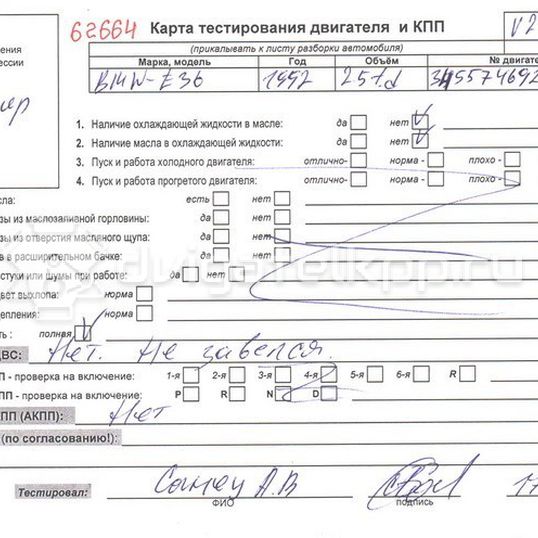 62664 Карта тестирования двигателя и КПП V2
(прикалывать к листу разборки автомобиля)
Марка, модель Год Объём № двигате
BMW-E36 1992 25t.d
1. Наличие охлаждающей жидкости в масле: да нет
2. Наличие масла в охлаждающей жидкости: да нет
3. Пуск и работа холодного двигателя: отлично- норма - плохо -
4. Пуск и работа прогретого двигателя: отлично- норма - плохо -
сла: есть нет
зы из маслозаливной горловины: да нет
зы из отверстия масляного щупа: да нет
в в расширительном бачке: да нет
стуки или шумы при работе: да нет
цвет выхлопа: норма
епления: норма
ть : полная
ДВС: Нет. Не завелся.
П - проверка на включение: 1-я 2-я 3-я 4-я 5-я 6-я R
ПП - проверка на включение: P R N D
ПП (АКПП): Нет
(по согласованию!):
Тестировал:
ФИО подпись
dvigatelkpp.ru